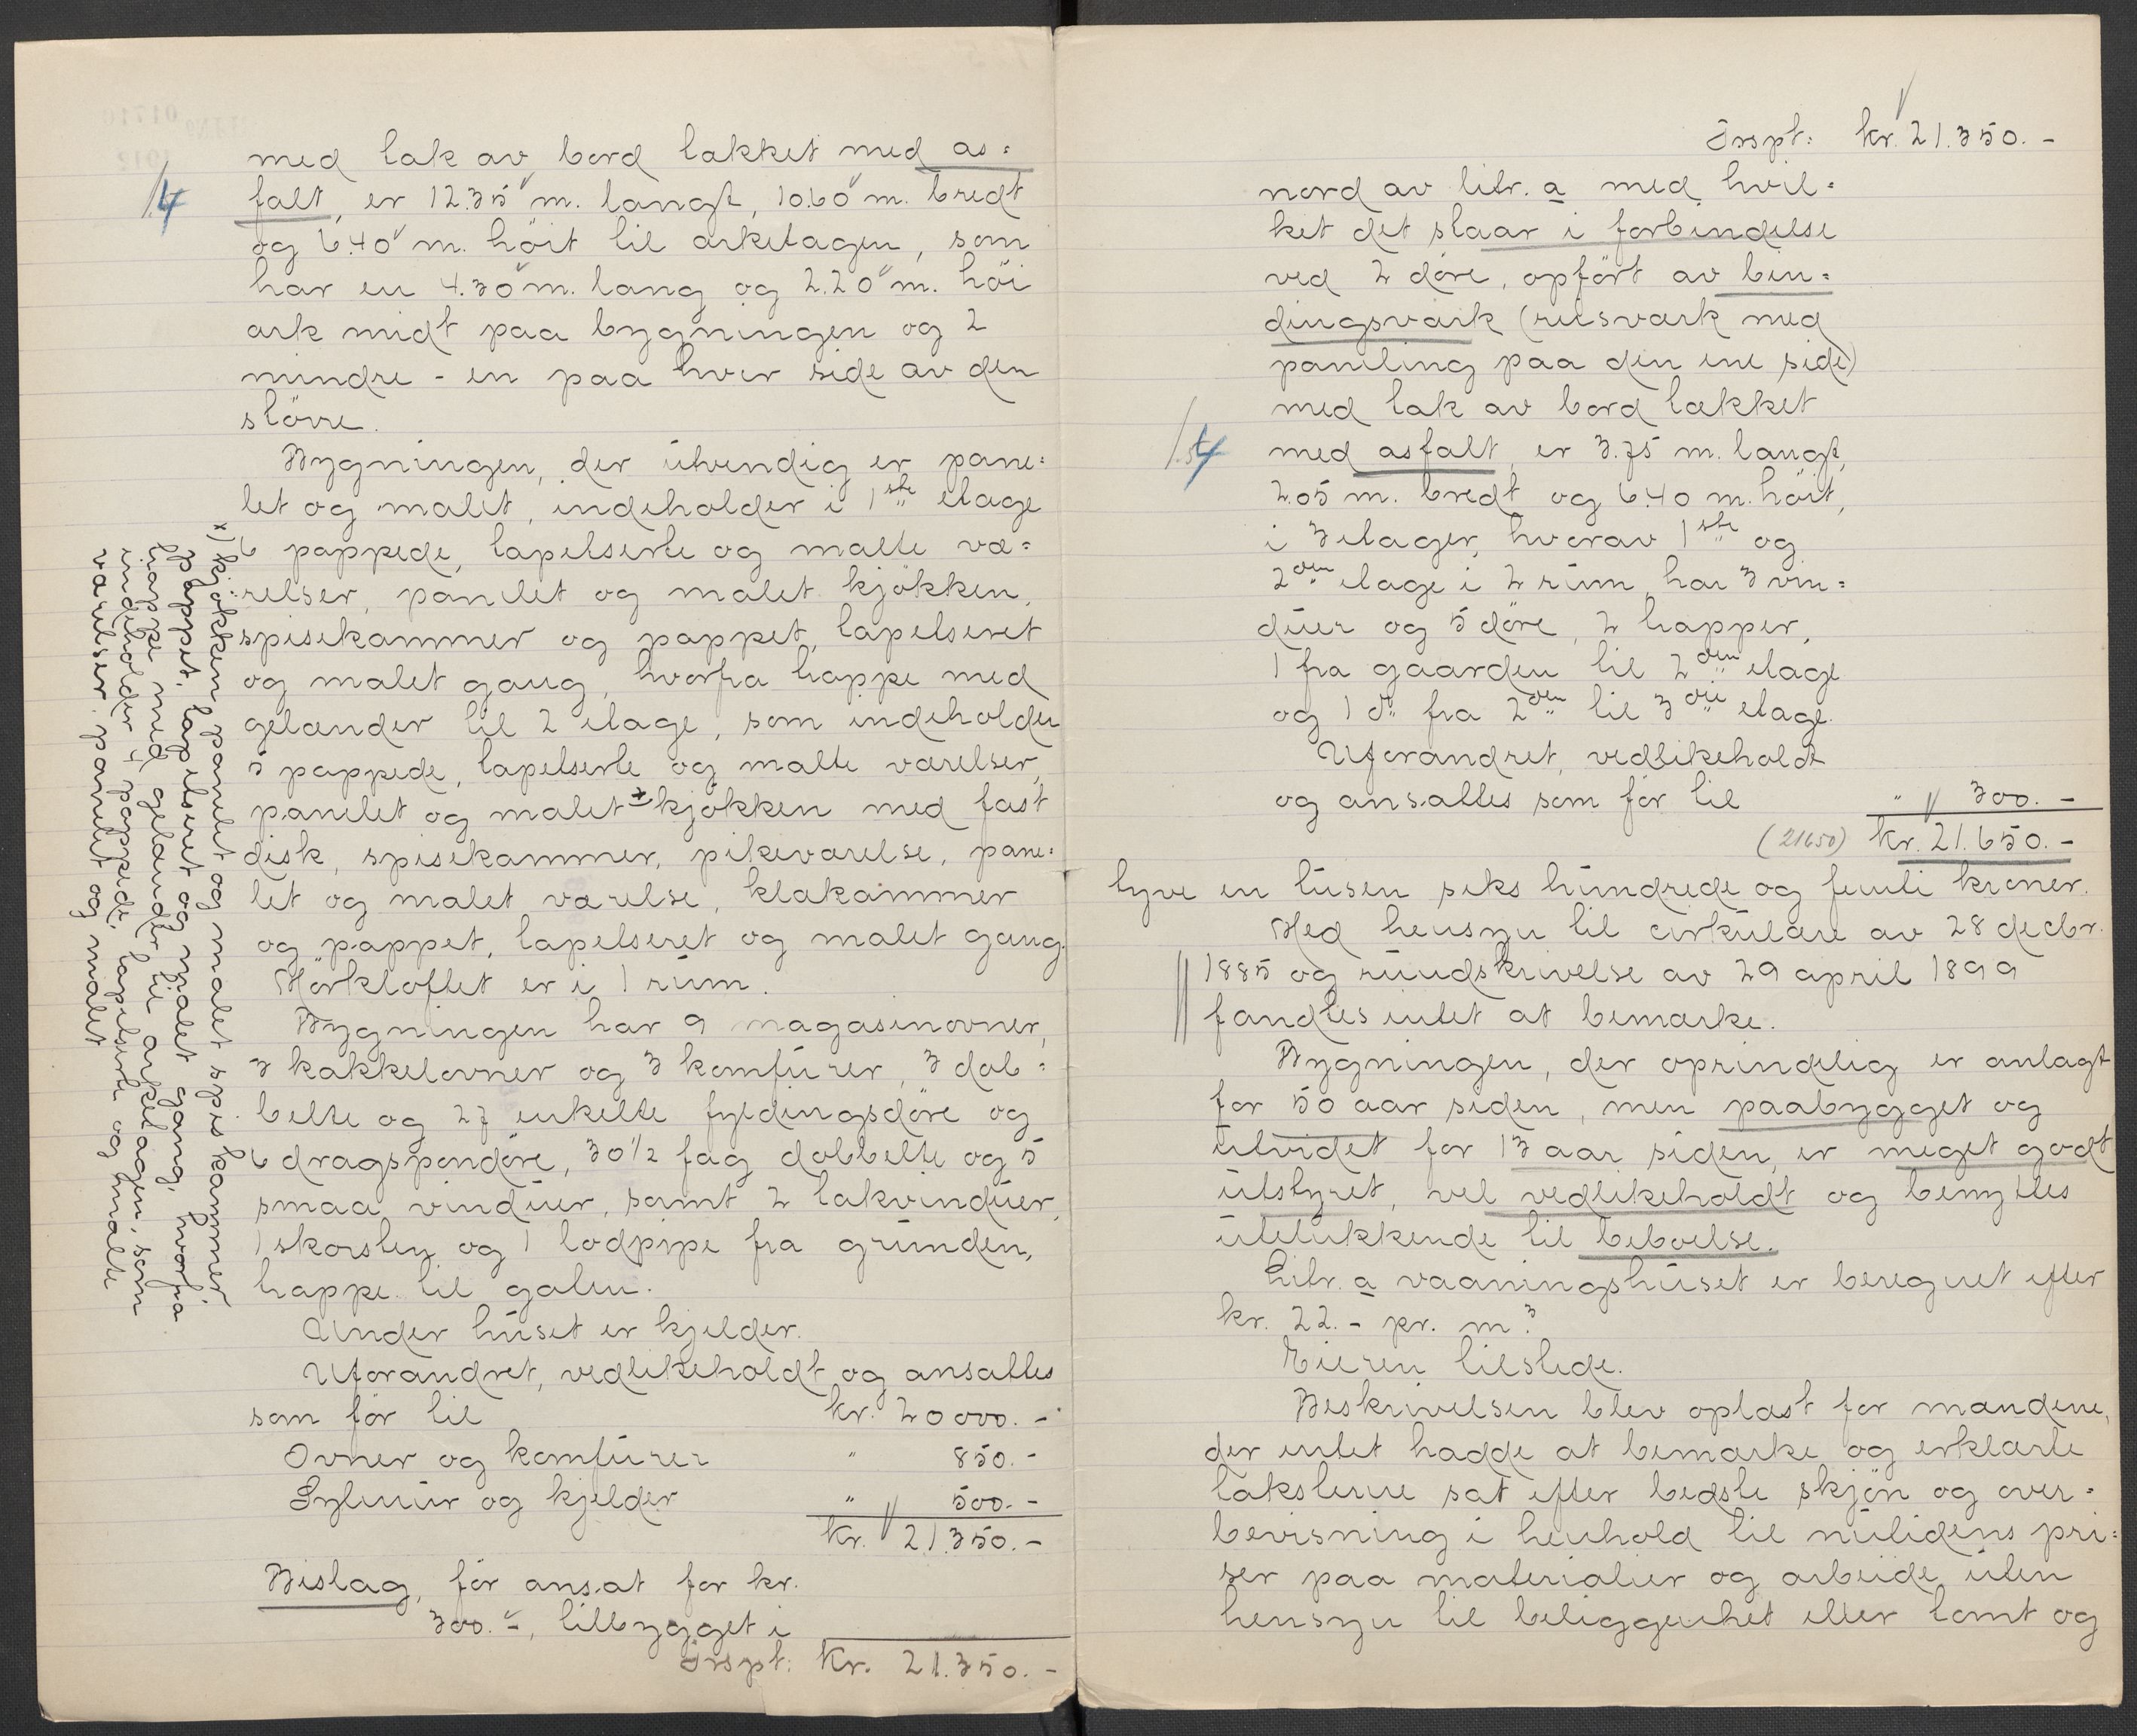 med tak av bord tækket med as=
falt, er 12.35 m. langt, 10.60 m. bredt
og 6.40 m. höit til arketagen, som
har en 4.30 m. lang og 2.20 m. höi
ark midt paa bygningen og 2
mindre - en paa hver side av den
större.
Bygningen, der utvendig er pane=
let og malet, indeholder i 1ste etage
6 pappede, tapetserte og malte væ=
relser, panelet og malet kjökken,
spisekammer og pappet, tapetseret
og malet gang, hvorfra trappe med
gelænder til 2 etage, som indeholder
5 pappede, tapetserte og malte værelser,
panelet og malet x kjökken med fast
disk, spisekammer, pikeværelse, pane=
let og malet værelse, klækammer
og pappet, tapetseret og malet gang.
Mörkloftet er i 1 rum.
Bygningen har 9 magasinovner,
3 kakkelovner og 3 komfurer, 3 dob=
belte og 27 enkelte fyldingsdöre og
6 dragspondöre, 30 1/2 fag dobbelte og 5
smaa vinduer, samt 2 takvinduer,
1 skorsten og 1 lodpipe fra grunden,
trappe til gaten.
Under huset er kjelder.
Uforandret, vedlikeholdt og ansættes
som för til kr. 20000.-
Ovner og komfurer " 850.-
Sylmur og kjelder " 500.-
kr. 21.350.-
Bislag, för ansat for kr.
300.-, tilbygget i
Trspt: Kr. 21.350.-
x) kjökken, panelet og malet spiskammer,
pappet, tapetseret og malet gang, hvorfra
trappe med gelænder til arketagen, som
indeholder 4 pappede, tapetserte og malte
værelser, panelet og malet
1.4
Trspt: kr. 21.350.-
nord av litr. a med hvil=
ket det staar i forbindelse
ved 2 döre, opfört av bin=
dingsværk (reisværk med
panling paa den ene side)
med tak av bord tækket
med asfalt, er 3.75 m. langt,
2.05 m. bredt og 6.40 m. höit,
i 3 etager, hvorav 1ste og
2den etage i 2 rum, har 3 vin=
duer og 5 döre, 2 trapper,
1 fra gaarden til 2den etage
og 1 do fra 2den til 3die etage.
Uforandret, vedlikeholdt
og ansættes som för til " 300.-
(21650) kr. 21.650.-
tyve en tusen seks hundrede og femti kroner.
Med hensyn til cirkulære av 28 decbr.
1885 og rundskrivelse av 29 april 1899
fandtes intet at bemærke.
Bygningen, der oprindelig er anlagt
for 50 aar siden, men paabygget og
utvidet for 13 aar siden, er meget godt
utstyret, vel vedlikeholdt og benyttes
utelukkende til beboelse.
Litr. a vaaningshuset er beregnet efter
kr. 22.- pr. m3
Eieren tilstede.
Beskrivelsen blev oplæst for mændene,
der intet hadde at bemærke og erklærte
taksterne sat efter bedste skjön og over=
bevisning i henhold til nutidens pri=
ser paa materialier og arbeide uten
hensyn til beliggenhet eller tomt og